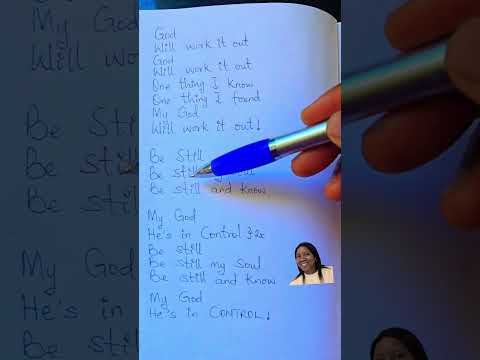 God
Will work it out
God
Will work it out
One thing I know
One thing I found
My God
Will work it out!
Be Still
Be still
Be still and know
My God
He's in Control }2x
Be still
Be still my Soul
Be still and know
My God
He's in CONTROL!